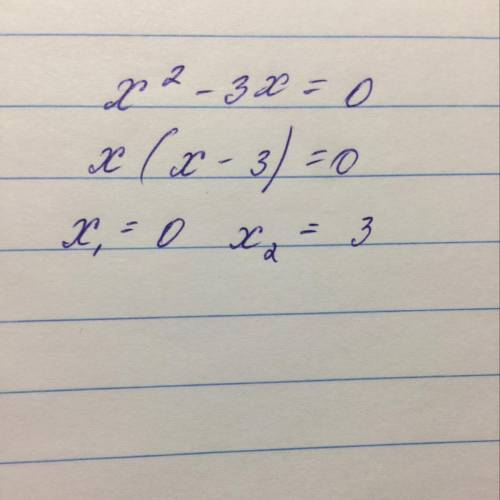 x² - 3x = 0
x(x - 3) = 0
x₁ = 0 x₂ = 3